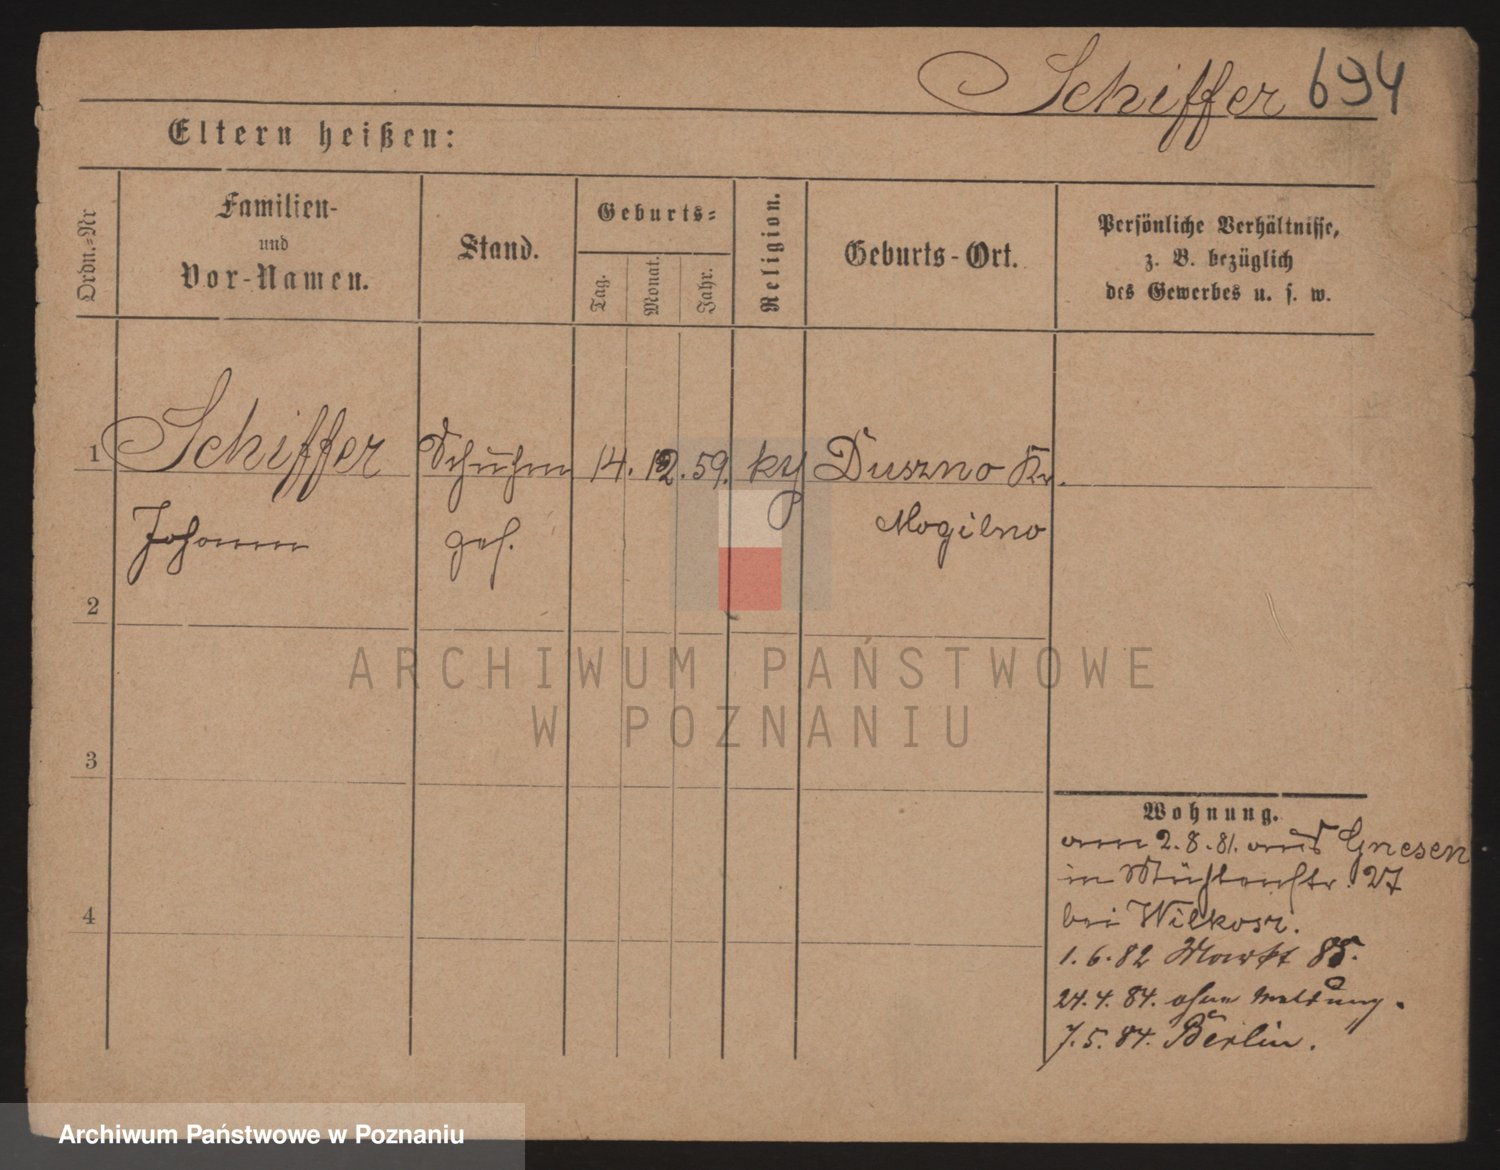 Schiffer 694
Eltern heißen:
Ordn.=Nr
Familien-
und
Vor-Namen.
Stand.
Geburts=
Tag.
Monat.
Jahr.
Religion.
Geburts-Ort.
Persönliche Verhältnisse,
z. B. bezüglich
des Gewerbes u. s. w.
1 Schiffer Schuhm 14. 12. 59. Duszno Kr.
Johann ges. Mogilno
2
3
4
Wohnung.
am 2.8.81. aus Gnesen
in Mühlenstr. 27
bei Wilkosz.
1.6.82 Markt 85.
24.4.84. ohne Meldung.
7.5.84. Berlin.
ARCHIWUM PAŃSTWOWE
W POZNANIU
Archiwum Państwowe w Poznaniu